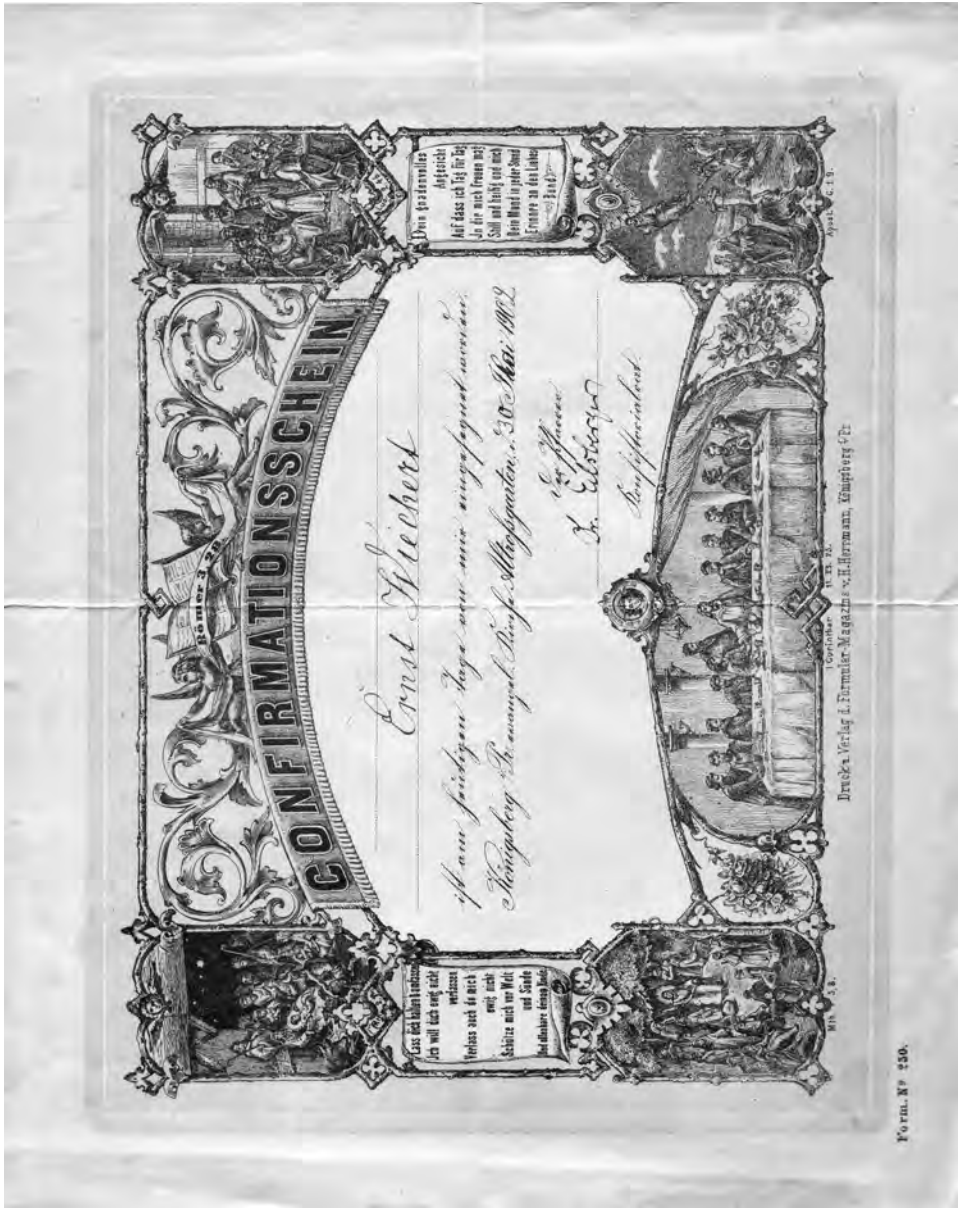 Römer 3, 28.
CONFIRMATIONSSCHEIN
Lass dich halten
Ich will dich ewig nicht
verlassen
Verlass auch du mich
ewig nicht
Schütze mich vor Welt
und Sünde
Und offenbare deinem Kinde
Dein gnadenvolles
Angesicht
Auf dass ich Tag für Tag
In dir mich freuen mag
Still und heilig und mich
Dein Mund in jeder Stund
Erinnre an den Liebes
Bund
Ernst Wiechert
ist am heutigen Tage von mir eingesegnet worden.
Königsberg Pr. evangel. Kirche Altroßgarten, d. 30 Mai 1902
Der Pfarrer
Dr.
Konsistorialrat.
Mth. 5, 8.
1 Corinther 11.
Apost. G. 1. 9.
Druck u. Verlag d. Formular-Magazins v. H. Herrmann, Königsberg i/Pr
Form. Nº 250.